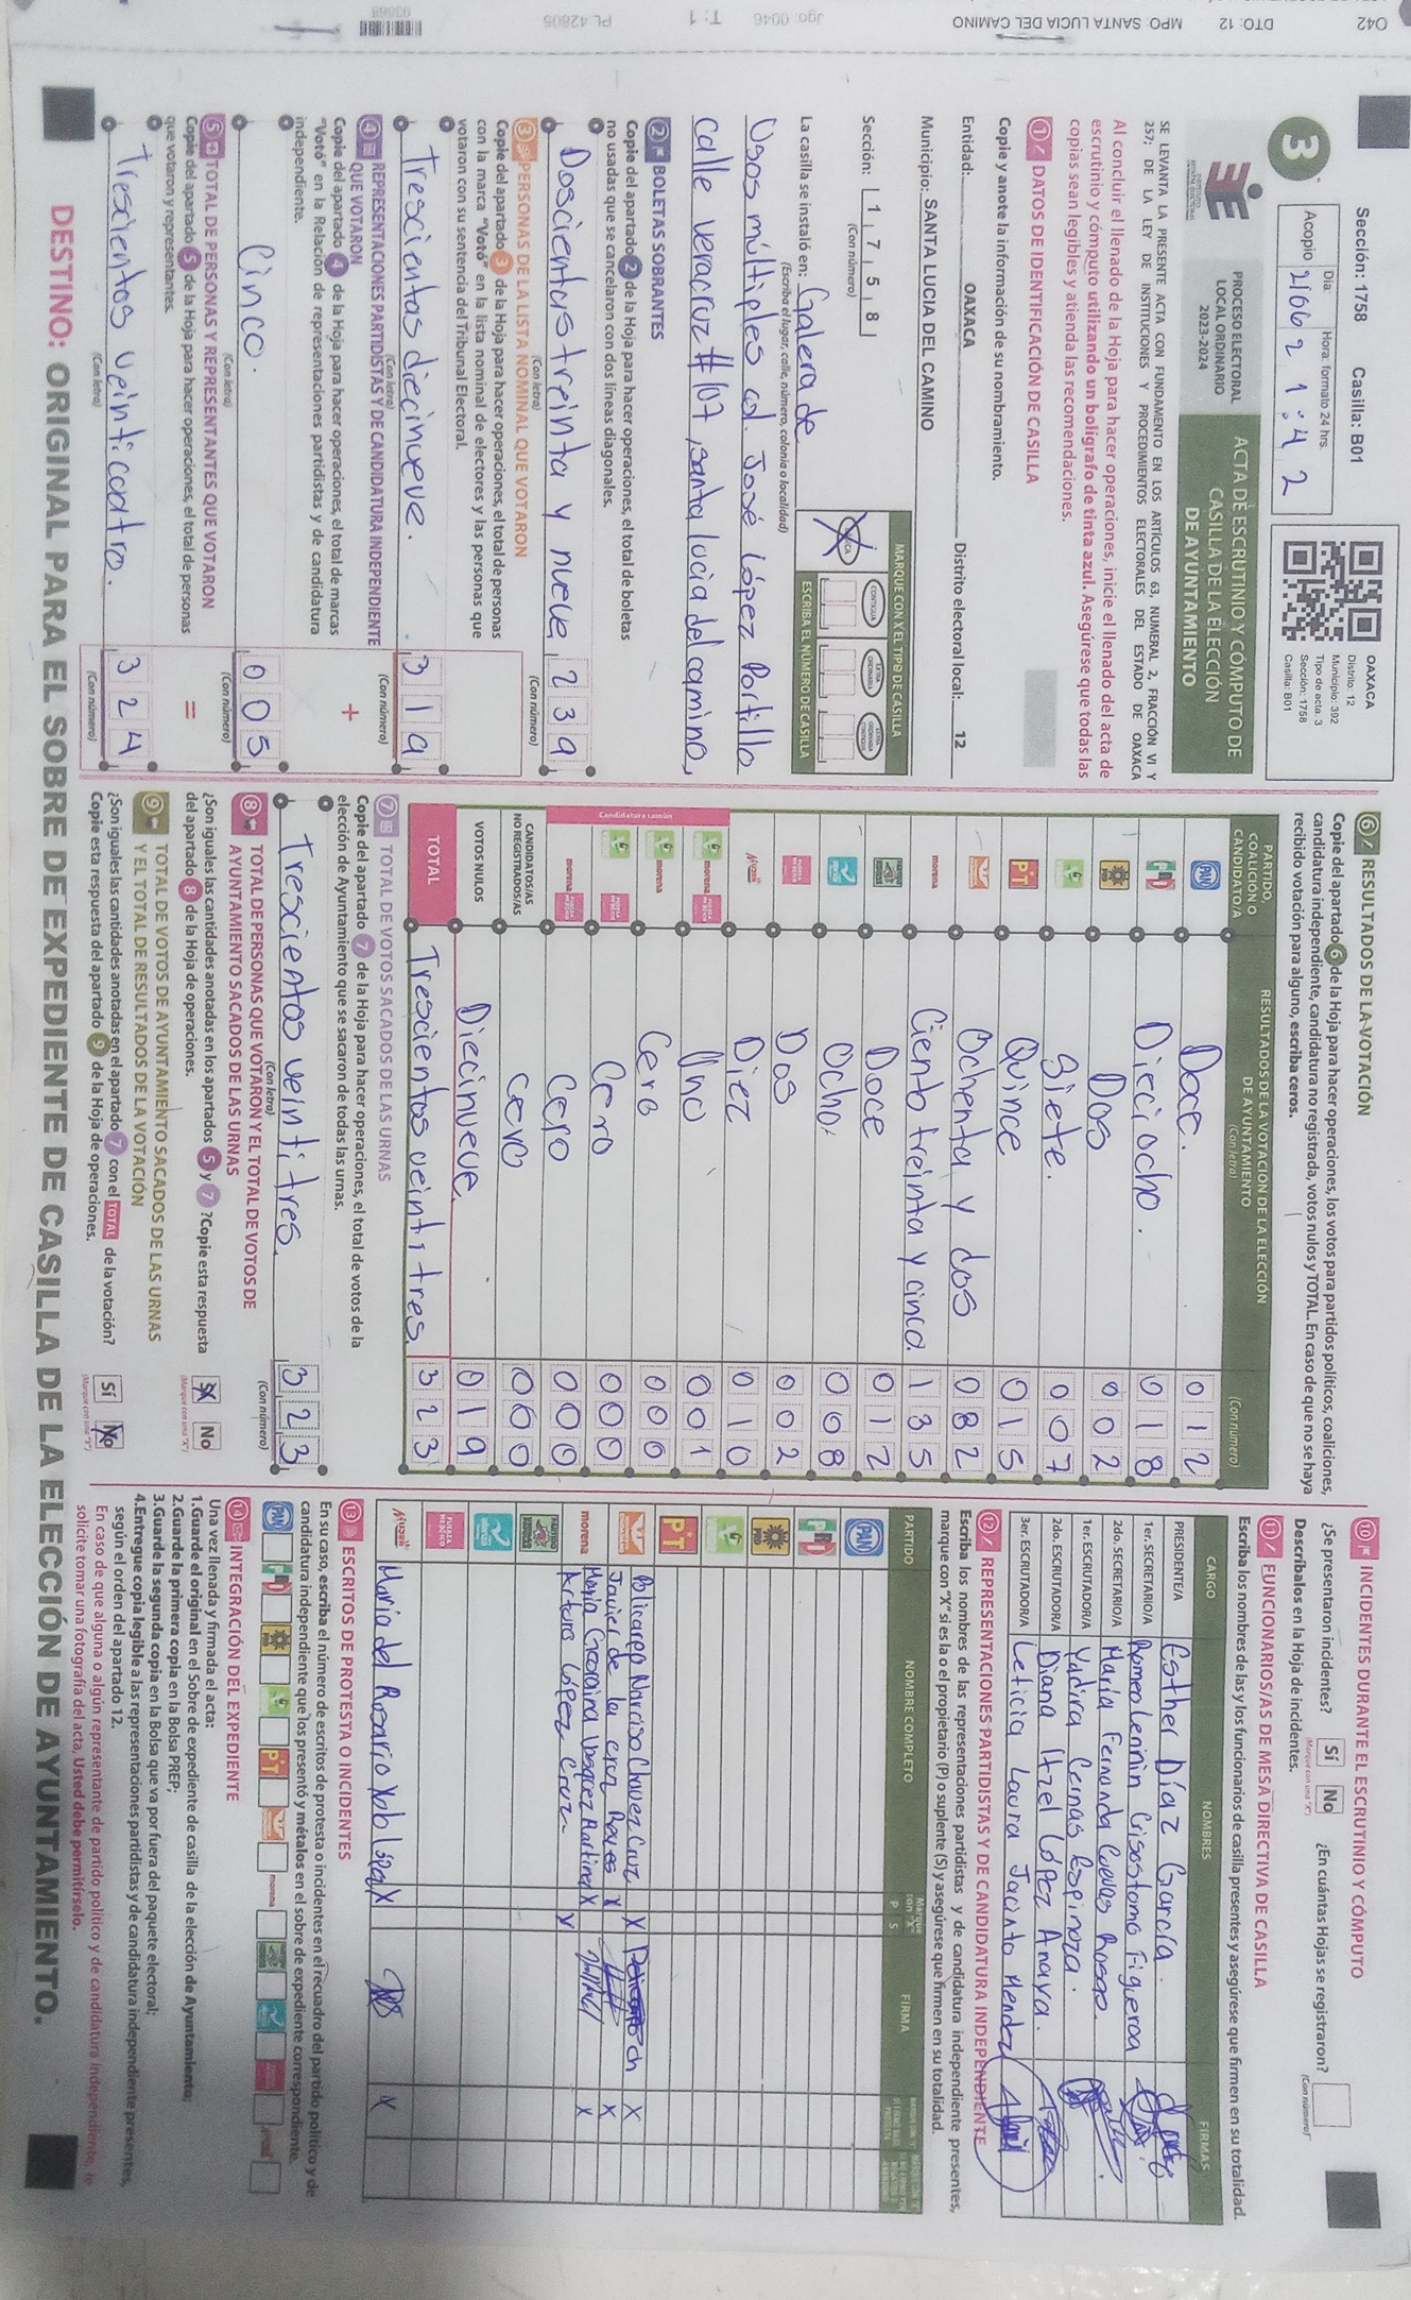 042 DTO: 12 MPO: SANTA LUCIA DEL CAMINO Jgo: 0046 T: 1 PL:42805
03668
Sección: 1758 Casilla: B01
3
Día: Hora: formato 24 hrs.
Acopio 2/06 21:42
OAXACA
Distrito: 12
Municipio: 392
Tipo de acta: 3
Sección: 1758
Casilla: B01
PROCESO ELECTORAL
LOCAL ORDINARIO
2023-2024
ACTA DE ESCRUTINIO Y CÓMPUTO DE
CASILLA DE LA ELECCIÓN
DE AYUNTAMIENTO
SE LEVANTA LA PRESENTE ACTA CON FUNDAMENTO EN LOS ARTÍCULOS 63, NUMERAL 2, FRACCIÓN VI Y
257; DE LA LEY DE INSTITUCIONES Y PROCEDIMIENTOS ELECTORALES DEL ESTADO DE OAXACA
Al concluir el llenado de la Hoja para hacer operaciones, inicie el llenado del acta de
escrutinio y cómputo utilizando un bolígrafo de tinta azul. Asegúrese que todas las
copias sean legibles y atienda las recomendaciones.
1 DATOS DE IDENTIFICACIÓN DE CASILLA
Copie y anote la información de su nombramiento.
Entidad: OAXACA Distrito electoral local: 12
Municipio: SANTA LUCIA DEL CAMINO
Sección: 1 7 5 8
(Con número)
MARQUE CON X EL TIPO DE CASILLA
CONTIGUA
ESCRIBA EL NÚMERO DE CASILLA
La casilla se instaló en: Galera de
(Escriba el lugar, calle, número, colonia o localidad)
Usos múltiples col. José López Portillo
calle veracruz #107, santa lucia del camino,
2 BOLETAS SOBRANTES
Copie del apartado 2 de la Hoja para hacer operaciones, el total de boletas
no usadas que se cancelaron con dos líneas diagonales.
Doscientas treinta y nueve 239
(Con letra) (Con número)
3 PERSONAS DE LA LISTA NOMINAL QUE VOTARON
Copie del apartado 3 de la Hoja para hacer operaciones, el total de personas
con la marca "Votó" en la lista nominal de electores y las personas que
votaron con su sentencia del Tribunal Electoral.
Trescientas diecinueve. 319
(Con letra) (Con número)
4 REPRESENTACIONES PARTIDISTAS Y DE CANDIDATURA INDEPENDIENTE
QUE VOTARON
Copie del apartado 4 de la Hoja para hacer operaciones, el total de marcas
"Votó" en la Relación de representaciones partidistas y de candidatura
independiente.
+
Cinco. 005
(Con letra) (Con número)
5 TOTAL DE PERSONAS Y REPRESENTANTES QUE VOTARON
Copie del apartado 5 de la Hoja para hacer operaciones, el total de personas
que votaron y representantes.
=
Trescientos veinticuatro. 324
(Con letra) (Con número)
6 RESULTADOS DE LA VOTACIÓN
Copie del apartado 6 de la Hoja para hacer operaciones, los votos para partidos políticos, coaliciones,
candidatura independiente, candidatura no registrada, votos nulos y TOTAL. En caso de que no se haya
recibido votación para alguno, escriba ceros.
PARTIDO,
COALICIÓN O
CANDIDATO/A
RESULTADOS DE LA VOTACIÓN DE LA ELECCIÓN
DE AYUNTAMIENTO
(Con letra) (Con número)
PAN Doce. 012
PRI Dieciocho. 018
PRD Dos 002
Siete. 007
PT Quince 015
Ochenta y dos 082
morena Ciento treinta y cinco. 135
Doce 012
Ocho. 008
Dos 002
Mujer Diez 010
Candidatura común
morena Uno 001
morena Cero 000
Cero 000
morena Cero 000
CANDIDATOS/AS
NO REGISTRADOS/AS Cero 000
VOTOS NULOS Diecinueve. 019
TOTAL Trescientos veintitres. 323
7 TOTAL DE VOTOS SACADOS DE LAS URNAS
Copie del apartado 7 de la Hoja para hacer operaciones, el total de votos de la
elección de Ayuntamiento que se sacaron de todas las urnas.
Trescientos veintitres. 323
(Con letra) (Con número)
8 TOTAL DE PERSONAS QUE VOTARON Y EL TOTAL DE VOTOS DE
AYUNTAMIENTO SACADOS DE LAS URNAS
¿Son iguales las cantidades anotadas en los apartados 5 y 7? Copie esta respuesta
del apartado 8 de la Hoja de operaciones.
Sí No
(Marque con una "X")
9 TOTAL DE VOTOS DE AYUNTAMIENTO SACADOS DE LAS URNAS
Y EL TOTAL DE RESULTADOS DE LA VOTACIÓN
¿Son iguales las cantidades anotadas en el apartado 7 con el TOTAL de la votación?
Copie esta respuesta del apartado 9 de la Hoja de operaciones.
Sí No
(Marque con una "X")
10 INCIDENTES DURANTE EL ESCRUTINIO Y CÓMPUTO
¿Se presentaron incidentes? Sí No ¿En cuántas Hojas se registraron?
(Marque con una "X") (Con número)
Descríbalos en la Hoja de incidentes.
11 FUNCIONARIOS/AS DE MESA DIRECTIVA DE CASILLA
Escriba los nombres de las y los funcionarios de casilla presentes y asegúrese que firmen en su totalidad.
CARGO NOMBRES FIRMAS
PRESIDENTE/A Esther Díaz García.
1er. SECRETARIO/A Romeo Leninin Crisostomo Figueroa
2do. SECRETARIO/A María Fernanda
1er. ESCRUTADOR/A Yadira Cernas Espinoza.
2do. ESCRUTADOR/A Diana Itzel López Anaya.
3er. ESCRUTADOR/A Leticia Laura Jacinto Mendez
12 REPRESENTACIONES PARTIDISTAS Y DE CANDIDATURA INDEPENDIENTE
Escriba los nombres de las representaciones partidistas y de candidatura independiente presentes,
marque con "X" si es la o el propietario (P) o suplente (S) y asegúrese que firmen en su totalidad.
PARTIDO NOMBRE COMPLETO Marque con "X" P S FIRMA
PAN
PRI
PRD
PT
Policarpo Narciso Chavez Cruz X X
Javier de la cruz Reyes X X
morena Maria Vasquez Martinez X X
Arturo López Cruz X
Mujer Maria del Rosario Yobb López X X
13 ESCRITOS DE PROTESTA O INCIDENTES
En su caso, escriba el número de escritos de protesta o incidentes en el recuadro del partido político y de
candidatura independiente que los presentó y métalos en el sobre de expediente correspondiente.
PAN PRI PRD PT morena
14 INTEGRACIÓN DEL EXPEDIENTE
Una vez llenada y firmada el acta:
1.Guarde el original en el Sobre de expediente de casilla de la elección de Ayuntamiento;
2.Guarde la primera copia en la Bolsa PREP;
3.Guarde la segunda copia en la Bolsa que va por fuera del paquete electoral;
4.Entregue copia legible a las representaciones partidistas y de candidatura independiente presentes,
según el orden del apartado 12.
En caso de que alguna o algún representante de partido político y de candidatura independiente, le
solicite tomar una fotografía del acta, Usted debe permitírselo.
DESTINO: ORIGINAL PARA EL SOBRE DE EXPEDIENTE DE CASILLA DE LA ELECCIÓN DE AYUNTAMIENTO.